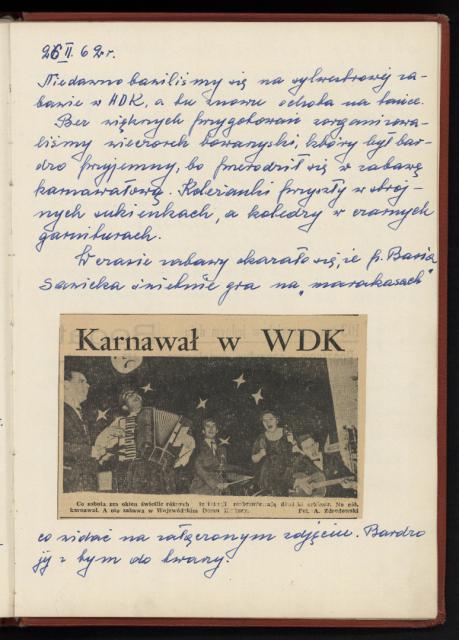 26 II 62 r.
Niedawno bawiliśmy się na sylwestrowej za-
bawie w WDK, a tu znowu ochota na tańce.
Bez większych przygotowań zorganizowa-
liśmy wieczorek towarzyski, który był bar-
dzo przyjemny, bo przerodził się w zabawę
karnawałową. Koleżanki przyszły w stroj-
nych sukienkach, a koledzy w czarnych
garniturach.
W czasie zabawy okazało się, że p. Basia
Sawicka świetnie gra na „marakasach"
Karnawał w WDK
Co sobota zza okien świetlic różnych
karnawał. A oto zabawa w Wojewódzkim Domu Kultury.
Fot. A. Zdrodowski
co widać na załączonym zdjęciu. Bardzo
jej z tym do twarzy.